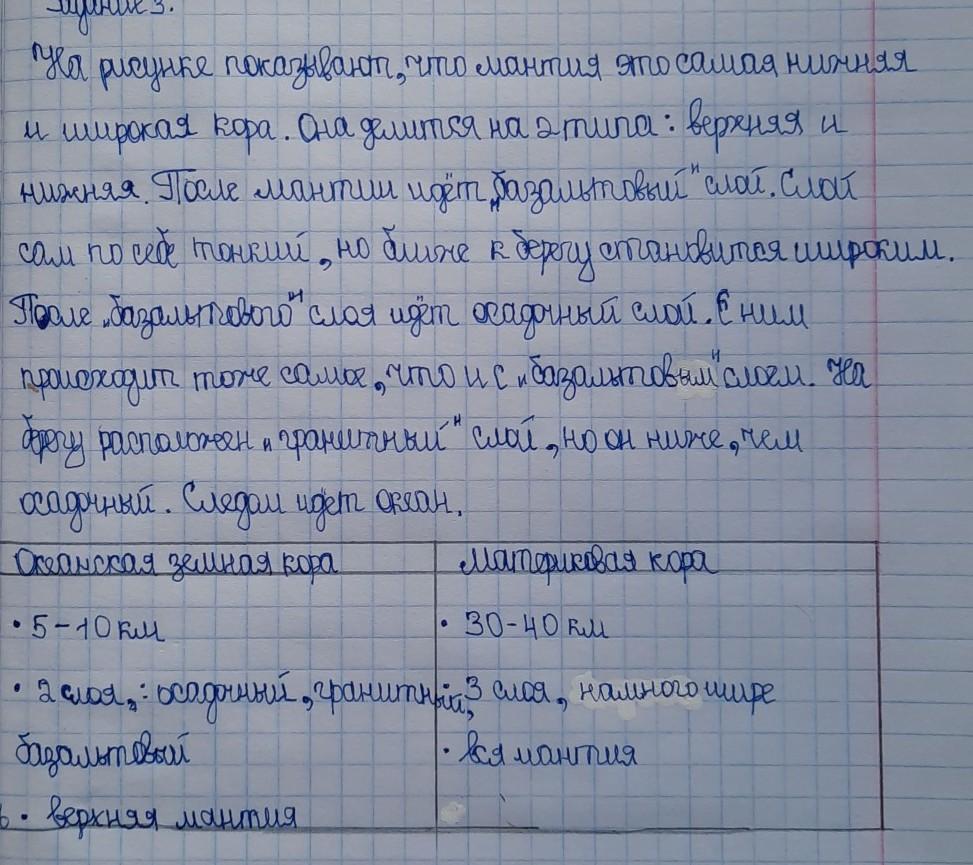 Задание 3.
На рисунке показывают, что мантия это самая нижняя
и широкая кора. Она делится на 2 типа: верхняя и
нижняя. После мантии идёт „базальтовый" слой. Слой
сам по себе тонкий, но ближе к берегу становится широким.
После „базальтового" слоя идёт осадочный слой. С ним
происходит тоже самое, что и с „базальтовым" слоем. На
берегу расположен „гранитный" слой, но он ниже, чем
осадочный. Следом идет океан.
Океанская земная кора
• 5-10 км
• 2 слоя,: осадочный, гранитный,
базальтовый
• верхняя мантия
Материковая кора
• 30-40 км
• 3 слоя, намного шире
• вся мантия